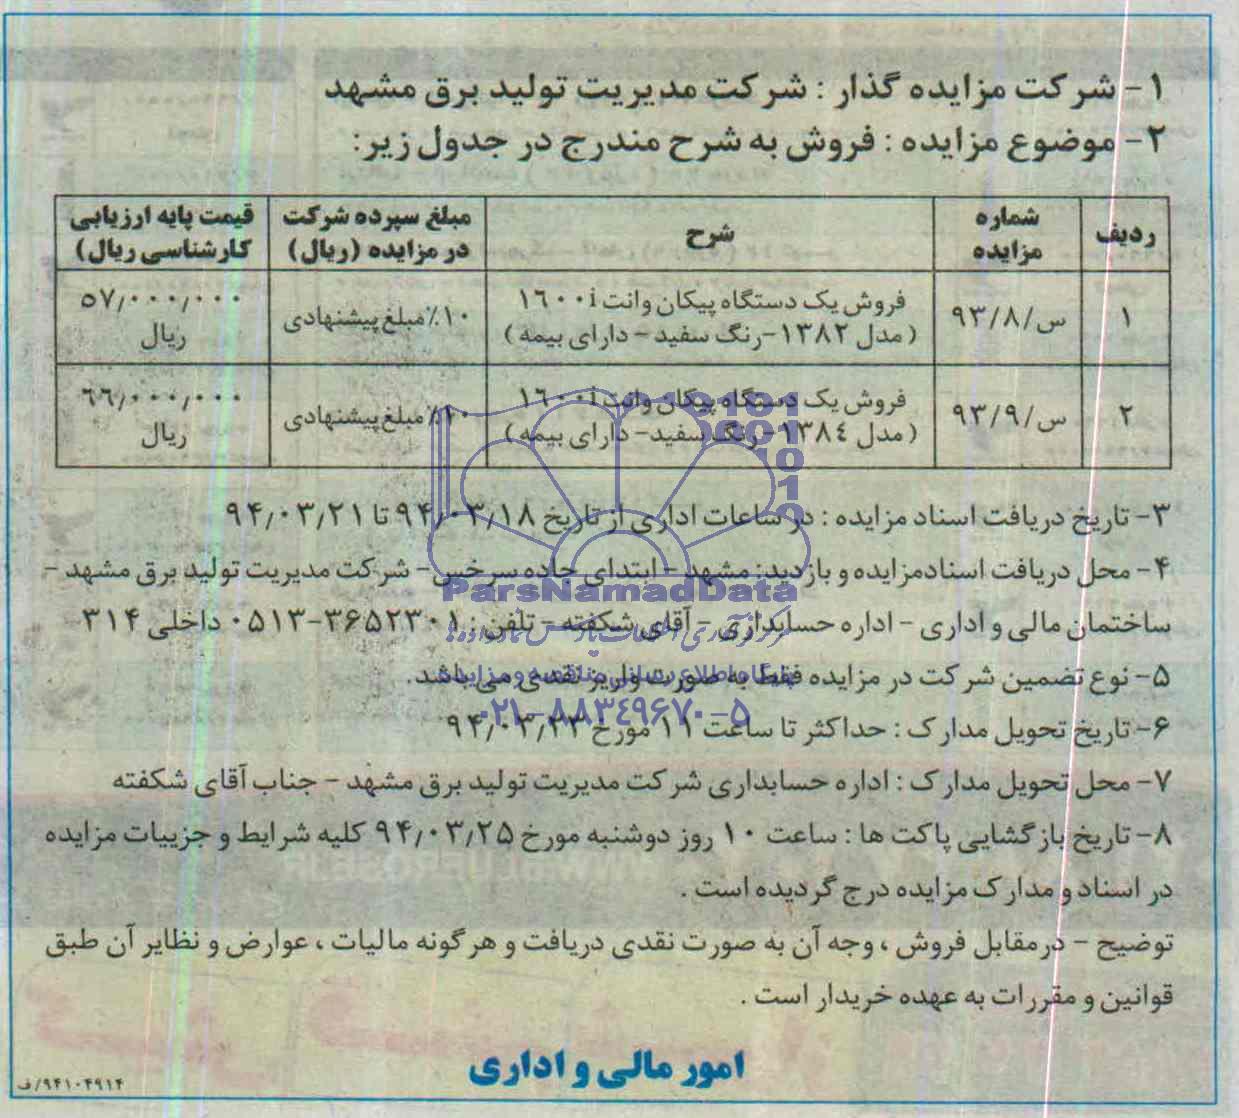 ۱- شرکت مزایده گذار : شرکت مدیریت تولید برق مشهد
۲- موضوع مزایده : فروش به شرح مندرج در جدول زیر:
ردیف
شماره
مزایده
شرح
مبلغ سپرده شرکت
در مزایده (ریال)
قیمت پایه ارزیابی
کارشناسی ریال)
۱
س/۹۳/۸
فروش یک دستگاه پیکان وانت ۱۶۰۰i
(مدل ۱۳۸۲-رنگ سفید - دارای بیمه)
۱۰٪ مبلغ پیشنهادی
۵۷٫۰۰۰٫۰۰۰
ریال
۲
س/۹۳/۹
فروش یک دستگاه پیکان وانت ۱۶۰۰i
(مدل ۱۳۸۴-رنگ سفید- دارای بیمه)
۱۰٪ مبلغ پیشنهادی
۶۶٫۰۰۰٫۰۰۰
ریال
۳- تاریخ دریافت اسناد مزایده : در ساعات اداری از تاریخ ۹۴٫۰۳٫۱۸ تا ۹۴٫۰۳٫۲۱
۴- محل دریافت اسنادمزایده و بازدید: مشهد - ابتدای جاده سرخس- شرکت مدیریت تولید برق مشهد -
ParsNamadData
ساختمان مالی و اداری - اداره حسابداری - آقای شکفته - تلفن : ۳۶۵۲۳۳۰۱-۰۵۱۳ داخلی ۳۱۴
۵- نوع تضمین شرکت در مزایده فقط به صورت واریز نقدی می باشد.
پایگاه اطلاع رسانی مناقصه و مزایده
۰۲۱-۸۸۳۴۹۶۷۰-۵
۶- تاریخ تحویل مدارک : حداکثر تا ساعت ۱۱ مورخ ۹۴٫۰۳٫۲۳
۷- محل تحویل مدارک : اداره حسابداری شرکت مدیریت تولید برق مشهد - جناب آقای شکفته
۸- تاریخ بازگشایی پاکت ها : ساعت ۱۰ روز دوشنبه مورخ ۹۴٫۰۳٫۲۵ کلیه شرایط و جزییات مزایده
در اسناد و مدارک مزایده درج گردیده است .
توضیح - درمقابل فروش ، وجه آن به صورت نقدی دریافت و هرگونه مالیات ، عوارض و نظایر آن طبق
قوانین و مقررات به عهده خریدار است .
امور مالی و اداری
۹۴۱۰۴۹۱۴/ف